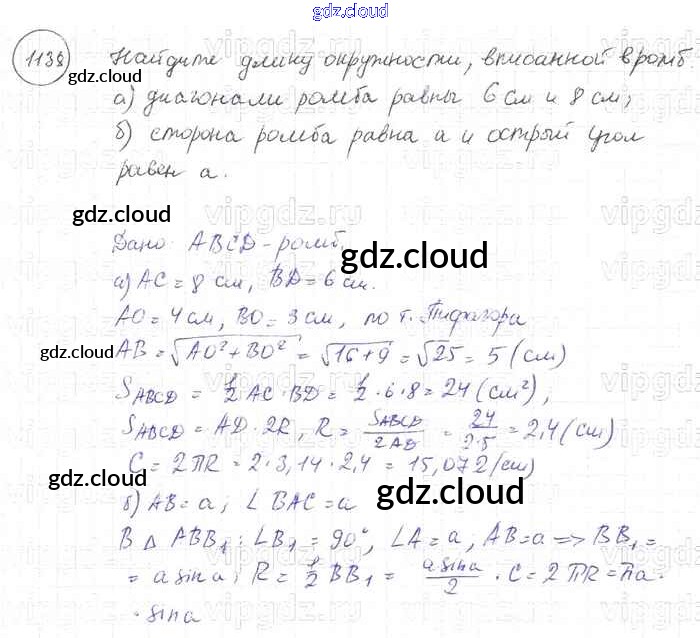 gdz.cloud
1138 Найдите длину окружности, вписанной в ромб.
gdz.cloud
а) диагонали ромба равны 6 см и 8 см;
gdz.cloud
б) сторона ромба равна a и острый угол
равен a.
gdz.cloud
Дано: ABCD - ромб.
gdz.cloud
а) AC = 8 см, BD = 6 см.
AO = 4 см, BO = 3 см, по т. Пифагора
gdz.cloud AB = √AO² + BO² = √16+9 = √25 = 5 (см)
S_ABCD = 1/2 AC · BD = 1/2 · 6 · 8 = 24 (см²),
S_ABCD = AD · 2R, R = S_ABCD/2AD = 24/2·5 = 2,4 (см)
gdz.cloud
C = 2πR = 2 · 3,14 · 2,4 = 15,072 (см)
gdz.cloud
gdz.cloud
б) AB = a; ∠BAC = a
В △ ABB₁: ∠B₁ = 90°, ∠A = a, AB = a => BB₁ =
= a sin a; R = 1/2 BB₁ = a sin a/2 · C = 2πR = πa ·
· sin a
vipgdz.ru